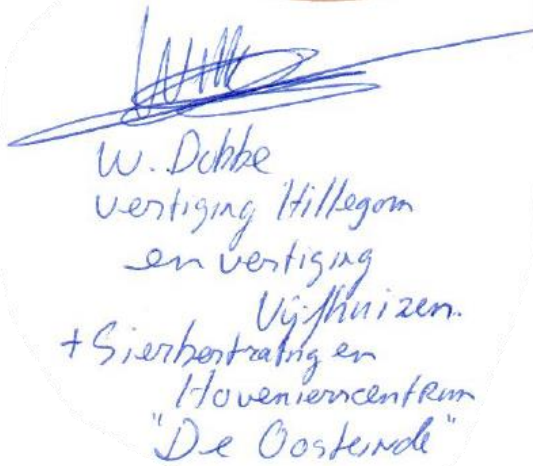 W. Dobbe
vestiging Hillegom
en vestiging
Vijfhuizen.
+ Sierbestrating en
Hovenierscentrum
"De Oosteinde"